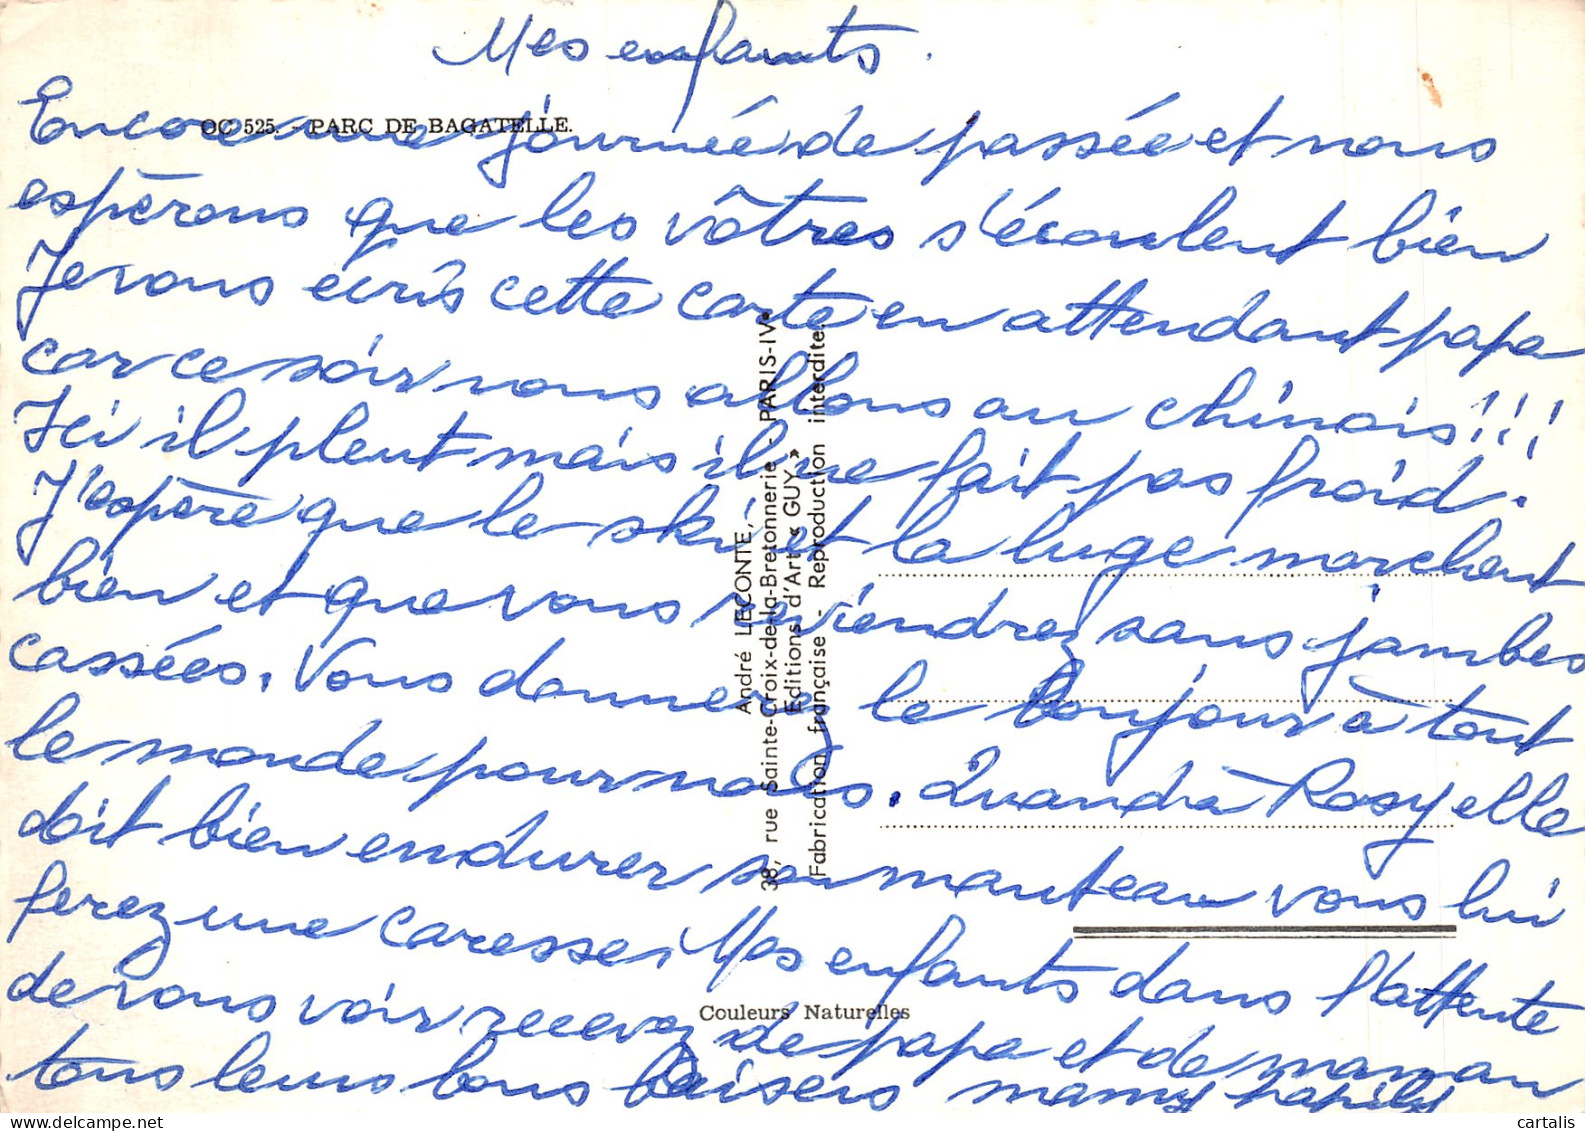 Mes enfants.
OC 525. - PARC DE BAGATELLE.
Encore une journée de passée et nous
espèrons que les vôtres s'écoulent bien
Je vous écris cette carte en attendant papa
car ce soir nous allons au chinois!!!
Ici il pleut mais il ne fait pas froid.
J'espère que le ski et la luge marchent
bien et que vous reviendrez sans jambes
cassées. Vous donnerez le bonjour à tout
le monde pour nous. Quand à Rosy elle
doit bien endurer son manteau vous lui
ferez une caresse. Mes enfants dans l'attente
de vous voir recevez de papa et de maman
tous leurs bons baisers mamy papily
André LECONTE,
38, rue Sainte-Croix-de-la-Bretonnerie - PARIS-IVe
Editions d'Art « GUY »
Fabrication française - Reproduction interdite.
Couleurs Naturelles
cartalis